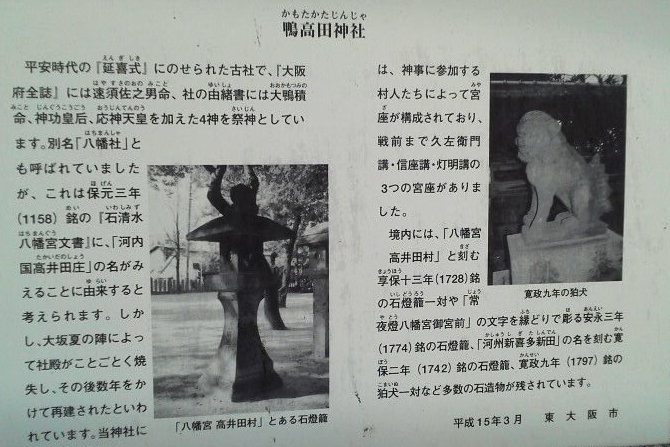 かもたかたじんじゃ
鴨高田神社
平安時代の『延喜式』にのせられた古社で、『大阪
府全誌』には速須佐之男命、社の由緒書には大鴨積
命、神功皇后、応神天皇を加えた4神を祭神としてい
ます。別名「八幡社」と
も呼ばれていました
が、これは保元三年
(1158) 銘の『石清水
八幡宮文書』に、「河内
国高井田庄」の名がみ
えることに由来すると
考えられます。しか
し、大坂夏の陣によっ
て社殿がことごとく焼
失し、その後数年をか
けて再建されたといわ
れています。当神社に
「八幡宮 高井田村」とある石燈籠
は、神事に参加する
村人たちによって宮
座が構成されており、
戦前まで久左衛門
講・信座講・灯明講の
3つの宮座がありま
した。
境内には、「八幡宮
高井田村」と刻む
享保十三年(1728)銘
の石燈籠一対や「常
夜燈八幡宮御宮前」の文字を縁どりで彫る安永三年
(1774) 銘の石燈籠、「河州新喜多新田」の名を刻む寛
保二年 (1742) 銘の石燈籠、寛政九年 (1797) 銘の
狛犬一対など多数の石造物が残されています。
寛政九年の狛犬
平成15年3月 東大阪市